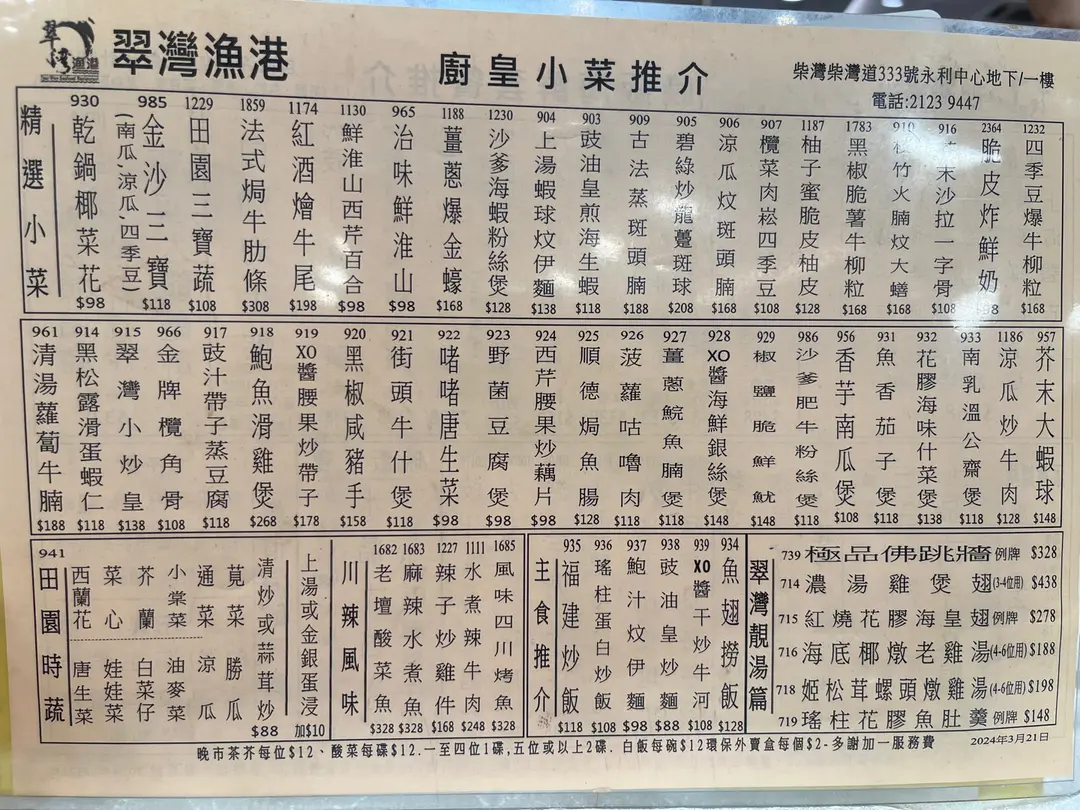 翠灣漁港
廚皇小菜推介
柴灣柴灣道333號永利中心地下/一樓
電話:2123 9447
精選小菜
930 乾鍋椰菜花 $98
985 金沙三寶 (南瓜,涼瓜,四季豆) $118
1229 田園三寶蔬 $108
1859 法式焗牛肋條 $308
1174 紅酒燴牛尾 $198
1130 鮮淮山西芹百合 $98
965 治味鮮淮山 $98
1188 薑蔥爆金蠔 $168
1230 沙爹海蝦粉絲煲 $128
904 上湯蝦球炆伊麵 $138
903 豉油皇煎海生蝦 $118
909 古法蒸斑頭腩 $188
905 碧綠炒龍躉斑球 $208
906 涼瓜炆斑頭腩 $168
907 欖菜肉崧四季豆 $108
1187 柚子蜜脆皮柚皮 $128
1783 黑椒脆薯牛柳粒 $168
910 枝竹火腩炆大鱔 $168
916 末沙拉一字骨 $108
2364 脆皮炸鮮奶
1232 四季豆爆牛柳粒 $168
961 清湯蘿蔔牛腩 $188
914 黑松露滑蛋蝦仁 $118
915 翠灣小炒皇 $138
966 金牌欖角骨 $108
917 豉汁帶子蒸豆腐 $118
918 鮑魚滑雞煲 $268
919 XO醬腰果炒帶子 $178
920 黑椒咸豬手 $158
921 街頭牛什煲 $118
922 啫啫唐生菜 $98
923 野菌豆腐煲 $98
924 西芹腰果炒藕片 $98
925 順德焗魚腸 $128
926 菠蘿咕嚕肉 $118
927 薑蔥鯇魚腩煲 $118
928 XO醬海鮮銀絲煲 $148
929 椒鹽脆鮮魷 $148
986 沙爹肥牛粉絲煲 $118
956 香芋南瓜煲 $108
931 魚香茄子煲 $118
932 花膠海味什菜煲 $138
933 南乳溫公齋煲 $118
1186 涼瓜炒牛肉 $118
957 芥末大蝦球 $148
941
田園時蔬
西蘭花 菜心 芥蘭 小棠菜 通菜 莧菜
唐生菜 娃娃菜 白菜仔 油麥菜 涼瓜 勝瓜
清炒或蒜茸炒 $88
上湯或金銀蛋浸 加$10
川辣風味
1682 老壇酸菜魚 $328
1683 麻辣水煮魚 $328
1227 辣子炒雞件 $168
1111 水煮辣牛肉 $248
1685 風味四川烤魚 $328
主食推介
935 福建炒飯 $118
936 瑤柱蛋白炒飯 $108
937 鮑汁炆伊麵 $98
938 豉油皇炒麵 $88
939 XO醬干炒牛河 $108
934 魚翅撈飯 $128
翠灣靚湯篇
739 極品佛跳牆 例牌 $328
714 濃湯雞煲翅 (3-4位用) $438
715 紅燒花膠海皇翅 例牌 $278
716 海底椰燉老雞湯 (4-6位用) $188
718 姬松茸螺頭燉雞湯 (4-6位用) $198
719 瑤柱花膠魚肚羹 例牌 $148
晚市茶芥每位$12、酸菜每碟$12.一至四位1碟,五位或以上2碟.白飯每碗$12環保外賣盒每個$2-多謝加一服務費
2024年3月21日